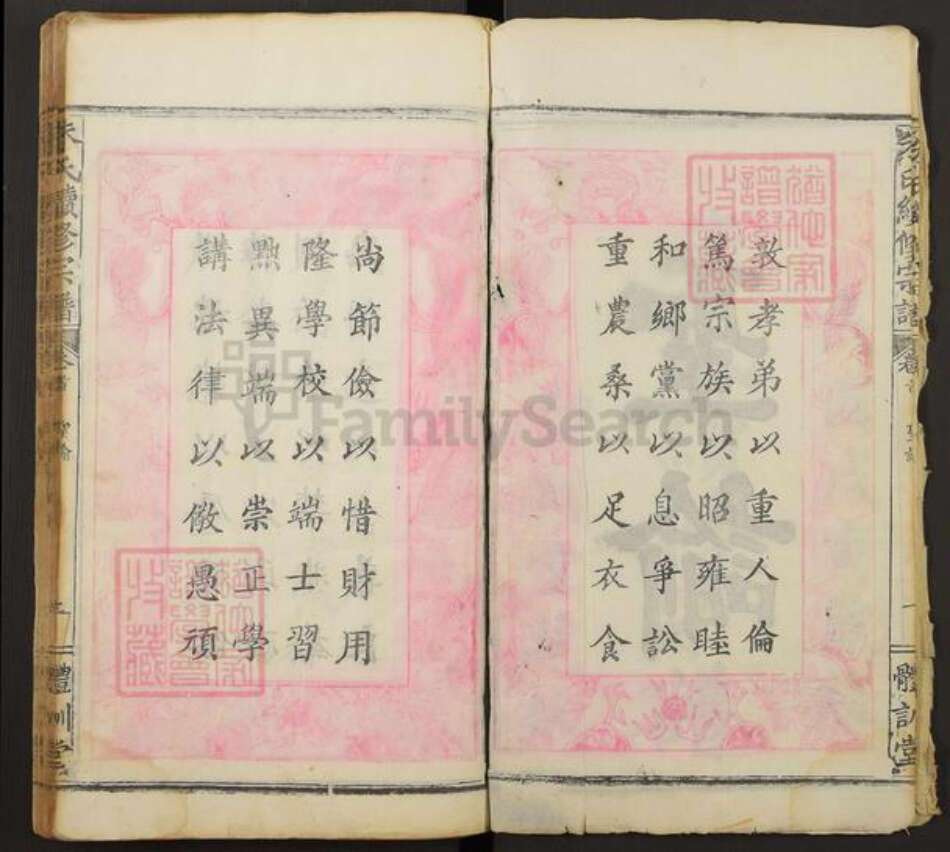 敦孝弟以重人倫
篤宗族以昭雍睦
和鄉黨以息爭訟
重農桑以足衣食
尚節儉以惜財用
隆學校以端士習
黜異端以崇正學
講法律以儆愚頑
氏續修宗譜
體訓堂
氏續修宗譜
體訓堂
FamilySearch